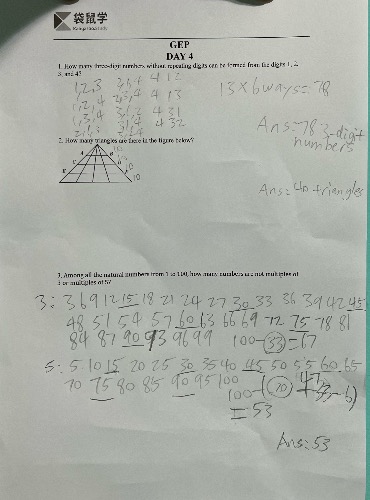 袋鼠学
GEP
DAY 4
1. How many three-digit numbers without repeating digits can be formed from the digits 1, 2,
3, and 4?
13 x 6 ways = 78
Ans = 78 3-digit
numbers
2. How many triangles are there in the figure below?
10
Ans = 40 triangles
3. Among all the natural numbers from 1 to 100, how many numbers are not multiples of
3 or multiples of 5?
3: 3 6 9 12 15 18 21 24 27 30 33 36 39 42 45
48 51 54 57 60 63 66 69 72 75 78 81
84 87 90 93 96 99 100-33=67
5: 5 10 15 20 25 30 35 40 45 50 55 60 65
70 75 80 85 90 95 100
100-
=53
Ans=53